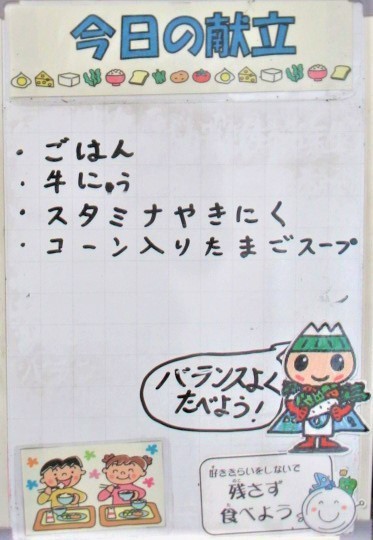 今日の献立
・ごはん
・牛にゅう
・スタミナやきにく
・コーン入りたまごスープ
バランスよく
たべよう!
好ききらいをしないで
残さず
食べよう。